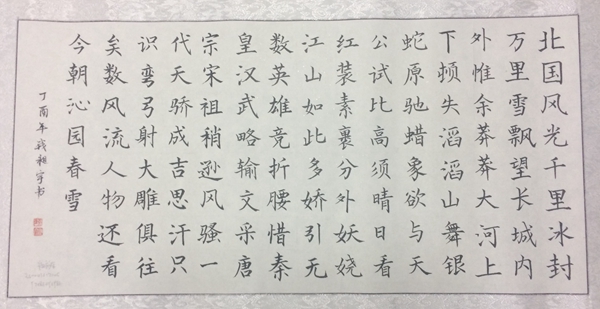 北国风光千里冰封
万里雪飘望长城内
外惟余莽莽大河上
下顿失滔滔山舞银
蛇原驰蜡象欲与天
公试比高须晴日看
红装素裹分外妖娆
江山如此多娇引无
数英雄竞折腰惜秦
皇汉武略输文采唐
宗宋祖稍逊风骚一
代天骄成吉思汗只
识弯弓射大雕俱往
矣数风流人物还看
今朝沁园春雪
丁酉年